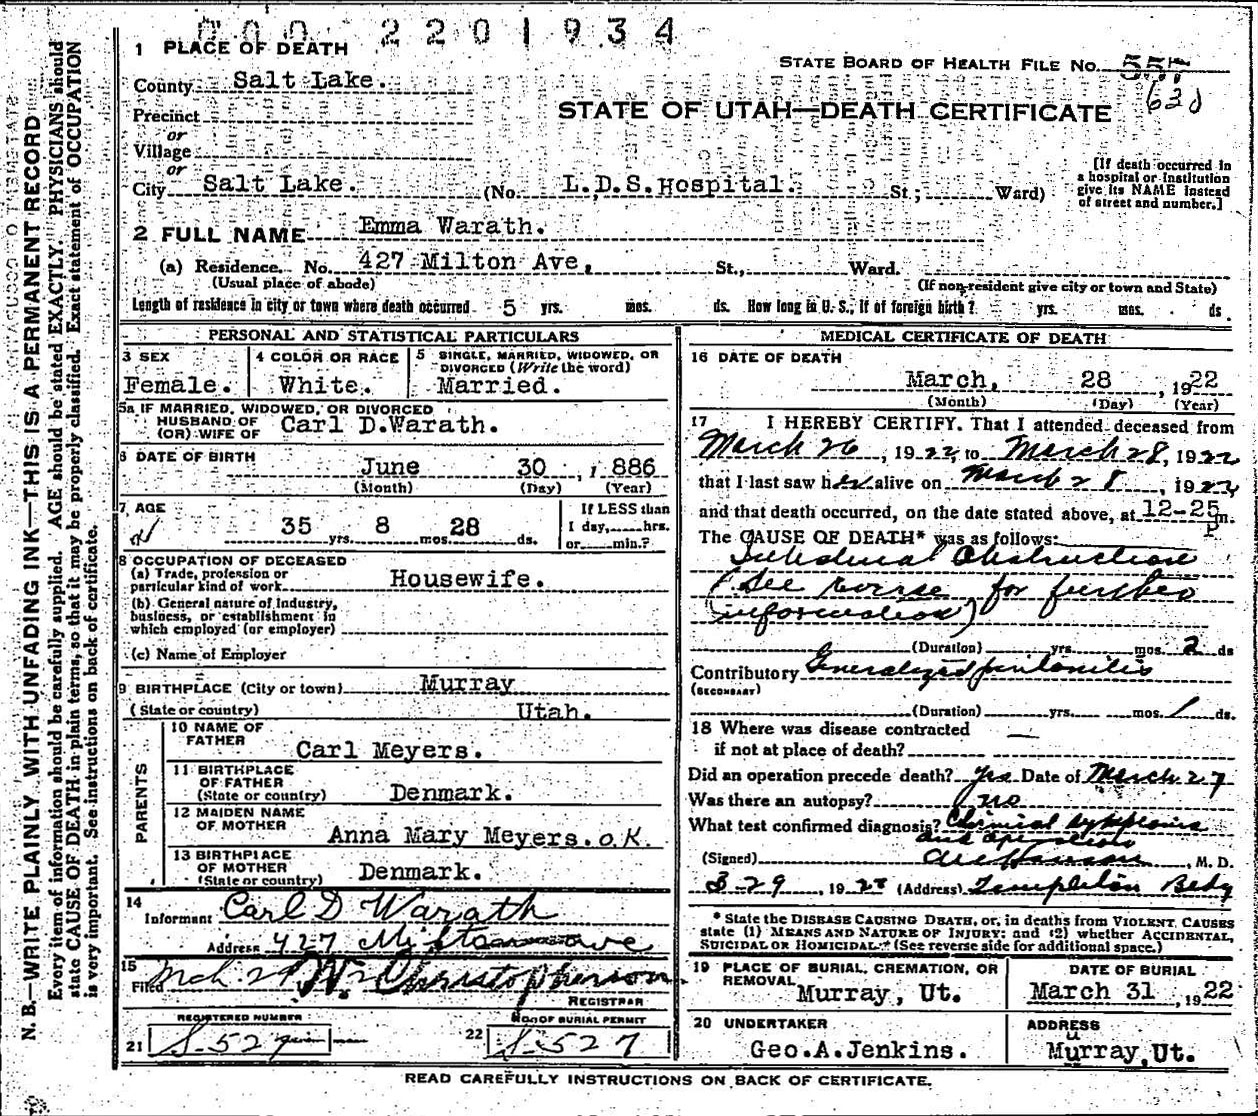 000 2201934
1 PLACE OF DEATH
STATE BOARD OF HEALTH FILE NO. 557
620
County Salt Lake.
STATE OF UTAH—DEATH CERTIFICATE
Precinct
or
Village
or
City Salt Lake. (No. L.D.S.Hospital. St; Ward)
[If death occurred in a hospital or institution give its NAME instead of street and number.]
2 FULL NAME Emma Warath.
(a) Residence. No. 427 Milton Ave, St., Ward.
(Usual place of abode) (If non-resident give city or town and State)
Length of residence in city or town where death occurred 5 yrs. mos. ds. How long in U. S., if of foreign birth? yrs. mos. ds.
PERSONAL AND STATISTICAL PARTICULARS
3 SEX
Female.
4 COLOR OR RACE
White.
5 SINGLE, MARRIED, WIDOWED, OR DIVORCED (Write the word)
Married.
5a IF MARRIED, WIDOWED, OR DIVORCED
HUSBAND OF
(OR) WIFE OF Carl D.Warath.
6 DATE OF BIRTH
June 30, 1886
(Month) (Day) (Year)
7 AGE
35 yrs. 8 mos. 28 ds.
If LESS than
1 day, hrs.
or min.?
8 OCCUPATION OF DECEASED
(a) Trade, profession or
particular kind of work Housewife.
(b) General nature of industry,
business, or establishment in
which employed (or employer)
(c) Name of Employer
9 BIRTHPLACE (City or town) Murray
(State or country) Utah.
PARENTS
10 NAME OF
FATHER Carl Meyers.
11 BIRTHPLACE
OF FATHER
(State or country) Denmark.
12 MAIDEN NAME
OF MOTHER Anna Mary Meyers. O.K.
13 BIRTHPLACE
OF MOTHER
(State or country) Denmark.
14
Informant Carl D Warath
Address 427 Milton ave
15
Filed Mch 29 W Christopherson
REGISTRAR
REGISTERED NUMBER
21 S-527
NO. OF BURIAL PERMIT
22 S-527
MEDICAL CERTIFICATE OF DEATH
16 DATE OF DEATH
March, 28, 1922
(Month) (Day) (Year)
17 I HEREBY CERTIFY. That I attended deceased from
March 26, 1922, to March 28, 1922
that I last saw her alive on March 28, 1922
and that death occurred, on the date stated above, at 12-25 P m.
The CAUSE OF DEATH* was as follows:
Intestinal Obstruction
(See reverse for further
information)
(Duration) yrs. mos. 2 ds
Contributory Generalized peritonitis
(SECONDARY)
(Duration) yrs. mos. 1 ds.
18 Where was disease contracted
if not at place of death? —
Did an operation precede death? yes Date of March 27
Was there an autopsy? no
What test confirmed diagnosis? Clinical symptoms
and operation
(Signed) , M. D.
3-29, 1922 (Address) Templeton Bldg
* State the DISEASE CAUSING DEATH, or, in deaths from VIOLENT CAUSES
state (1) MEANS AND NATURE OF INJURY: and (2) whether ACCIDENTAL,
SUICIDAL OR HOMICIDAL. (See reverse side for additional space.)
19 PLACE OF BURIAL, CREMATION, OR
REMOVAL Murray, Ut.
DATE OF BURIAL
March 31, 1922
20 UNDERTAKER
Geo.A.Jenkins.
ADDRESS
Murray,Ut.
READ CAREFULLY INSTRUCTIONS ON BACK OF CERTIFICATE.
N. B.—WRITE PLAINLY WITH UNFADING INK—THIS IS A PERMANENT RECORD
Every item of information should be carefully supplied. AGE should be stated EXACTLY. PHYSICIANS should
state CAUSE OF DEATH in plain terms, so that it may be properly classified. Exact statement of OCCUPATION
is very important. See instructions on back of certificate.